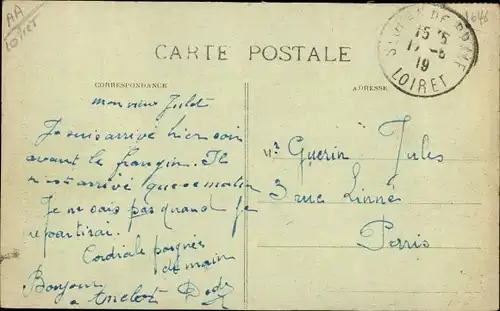 AA
Loiret
CARTE POSTALE
CORRESPONDANCE
ADRESSE
15 15
17 - 6
19
LOIRET
mon vieux Julot
Je suis arrivé hier soir
avant le frangin. Il
n'est arrivé que ce matin
Je ne sais pas quand je
repartirai.
Cordiale poignée
de main
Bonjour
a Dédé
Mr Guerin Jules
3 rue Linné
Paris